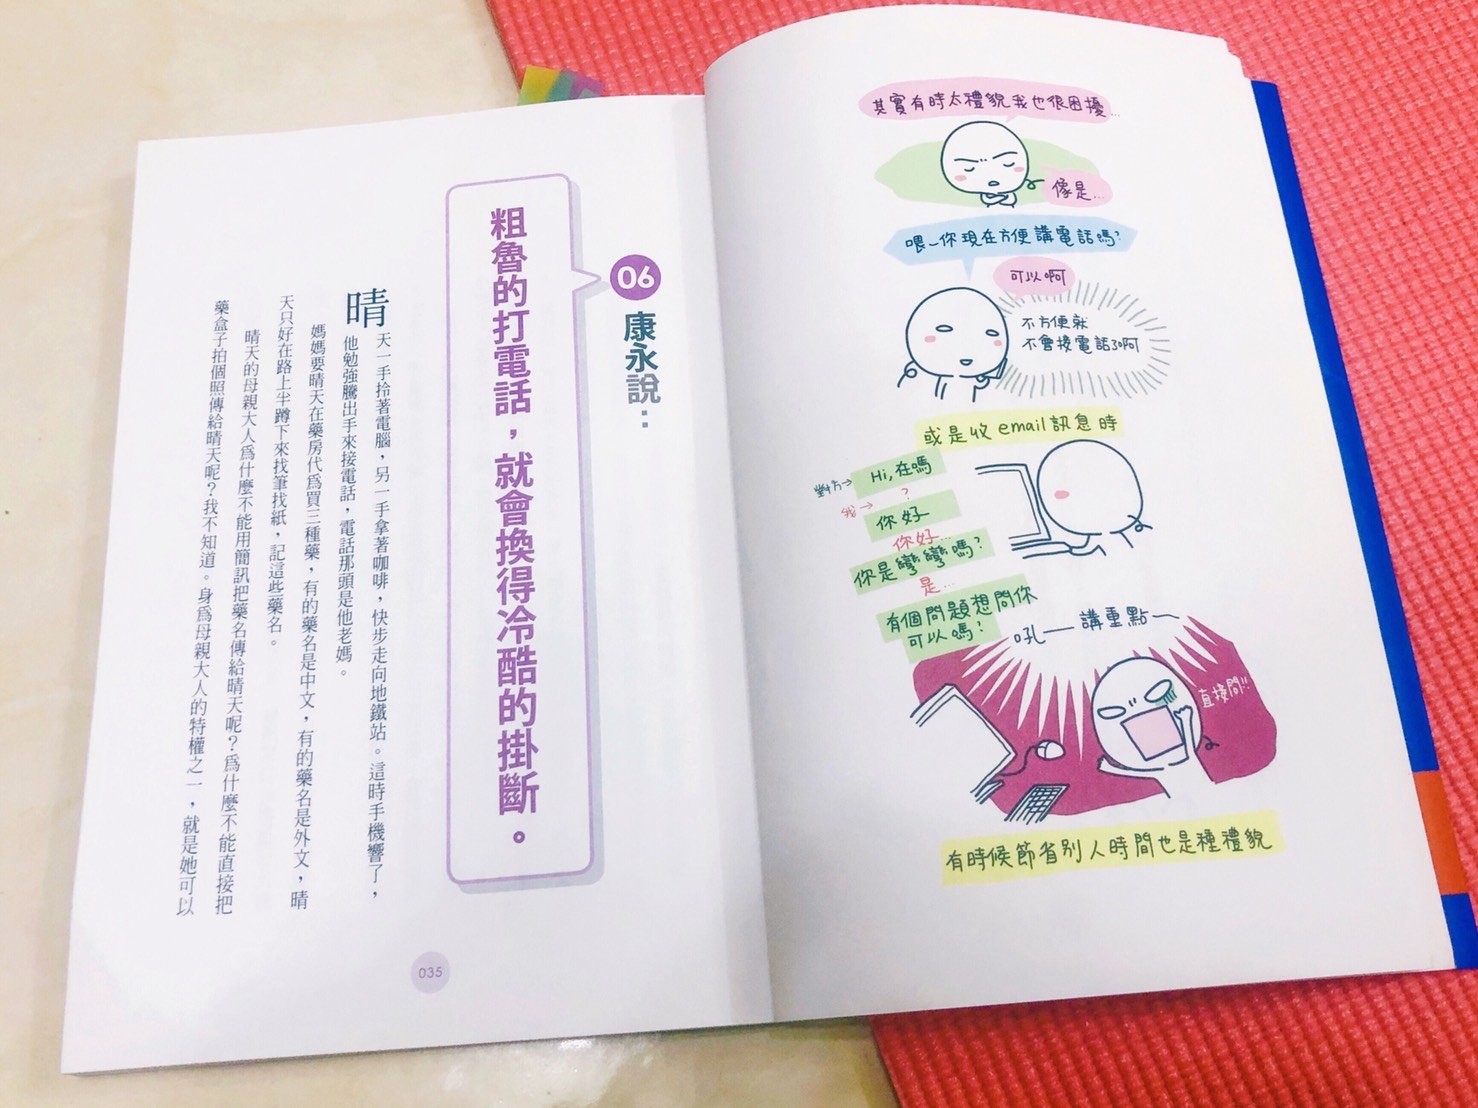 06
康永說：
粗魯的打電話，就會換得冷酷的掛斷。
晴天一手拎著電腦，另一手拿著咖啡，快步走向地鐵站。這時手機響了，
他勉強騰出手來接電話，電話那頭是他老媽。
媽媽要晴天在藥房代為買三種藥，有的藥名是中文，有的藥名是外文，晴
天只好在路上半蹲下來找筆找紙，記這些藥名。
晴天的母親大人為什麼不能用簡訊把藥名傳給晴天呢？為什麼不能直接把
藥盒子拍個照傳給晴天呢？我不知道。身為母親大人的特權之一，就是她可以
035
其實有時太禮貌我也很困擾…
像是…
喂~你現在方便講電話嗎?
可以啊
不方便就
不會接電話了啊
或是收email訊息時
對方→
Hi,在嗎
?
我→
你好
你好…
你是彎彎嗎?
是…
有個問題想問你
可以嗎?
吼——講重點——
直接問!!
有時候節省別人時間也是種禮貌